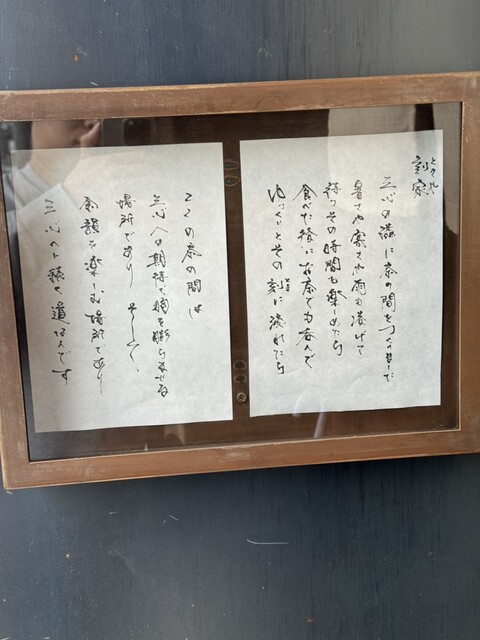 刻家
三心の隣に茶の間をつくりました
暑さや寒さや雨も凌げて
待つその時間も楽しめたら
食べた後にお茶でも呑んで
ゆっくりとその刻に浸れたら
ここの茶の間は
三心への期待で胸を膨らませる
場所であり そして、
余韻を楽しむ場所であり
三心へと続く道なんです